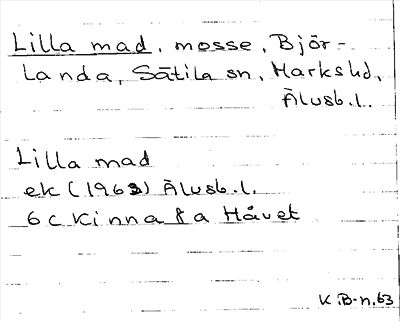 Lilla mad, mosse, Björ-
landa, Sätila sn, Marks hd,
Älvsb.l.
Lilla mad
ek (1963) Älvsb.l.
6 c Kinna 8 a Håvet
K.B-n.63